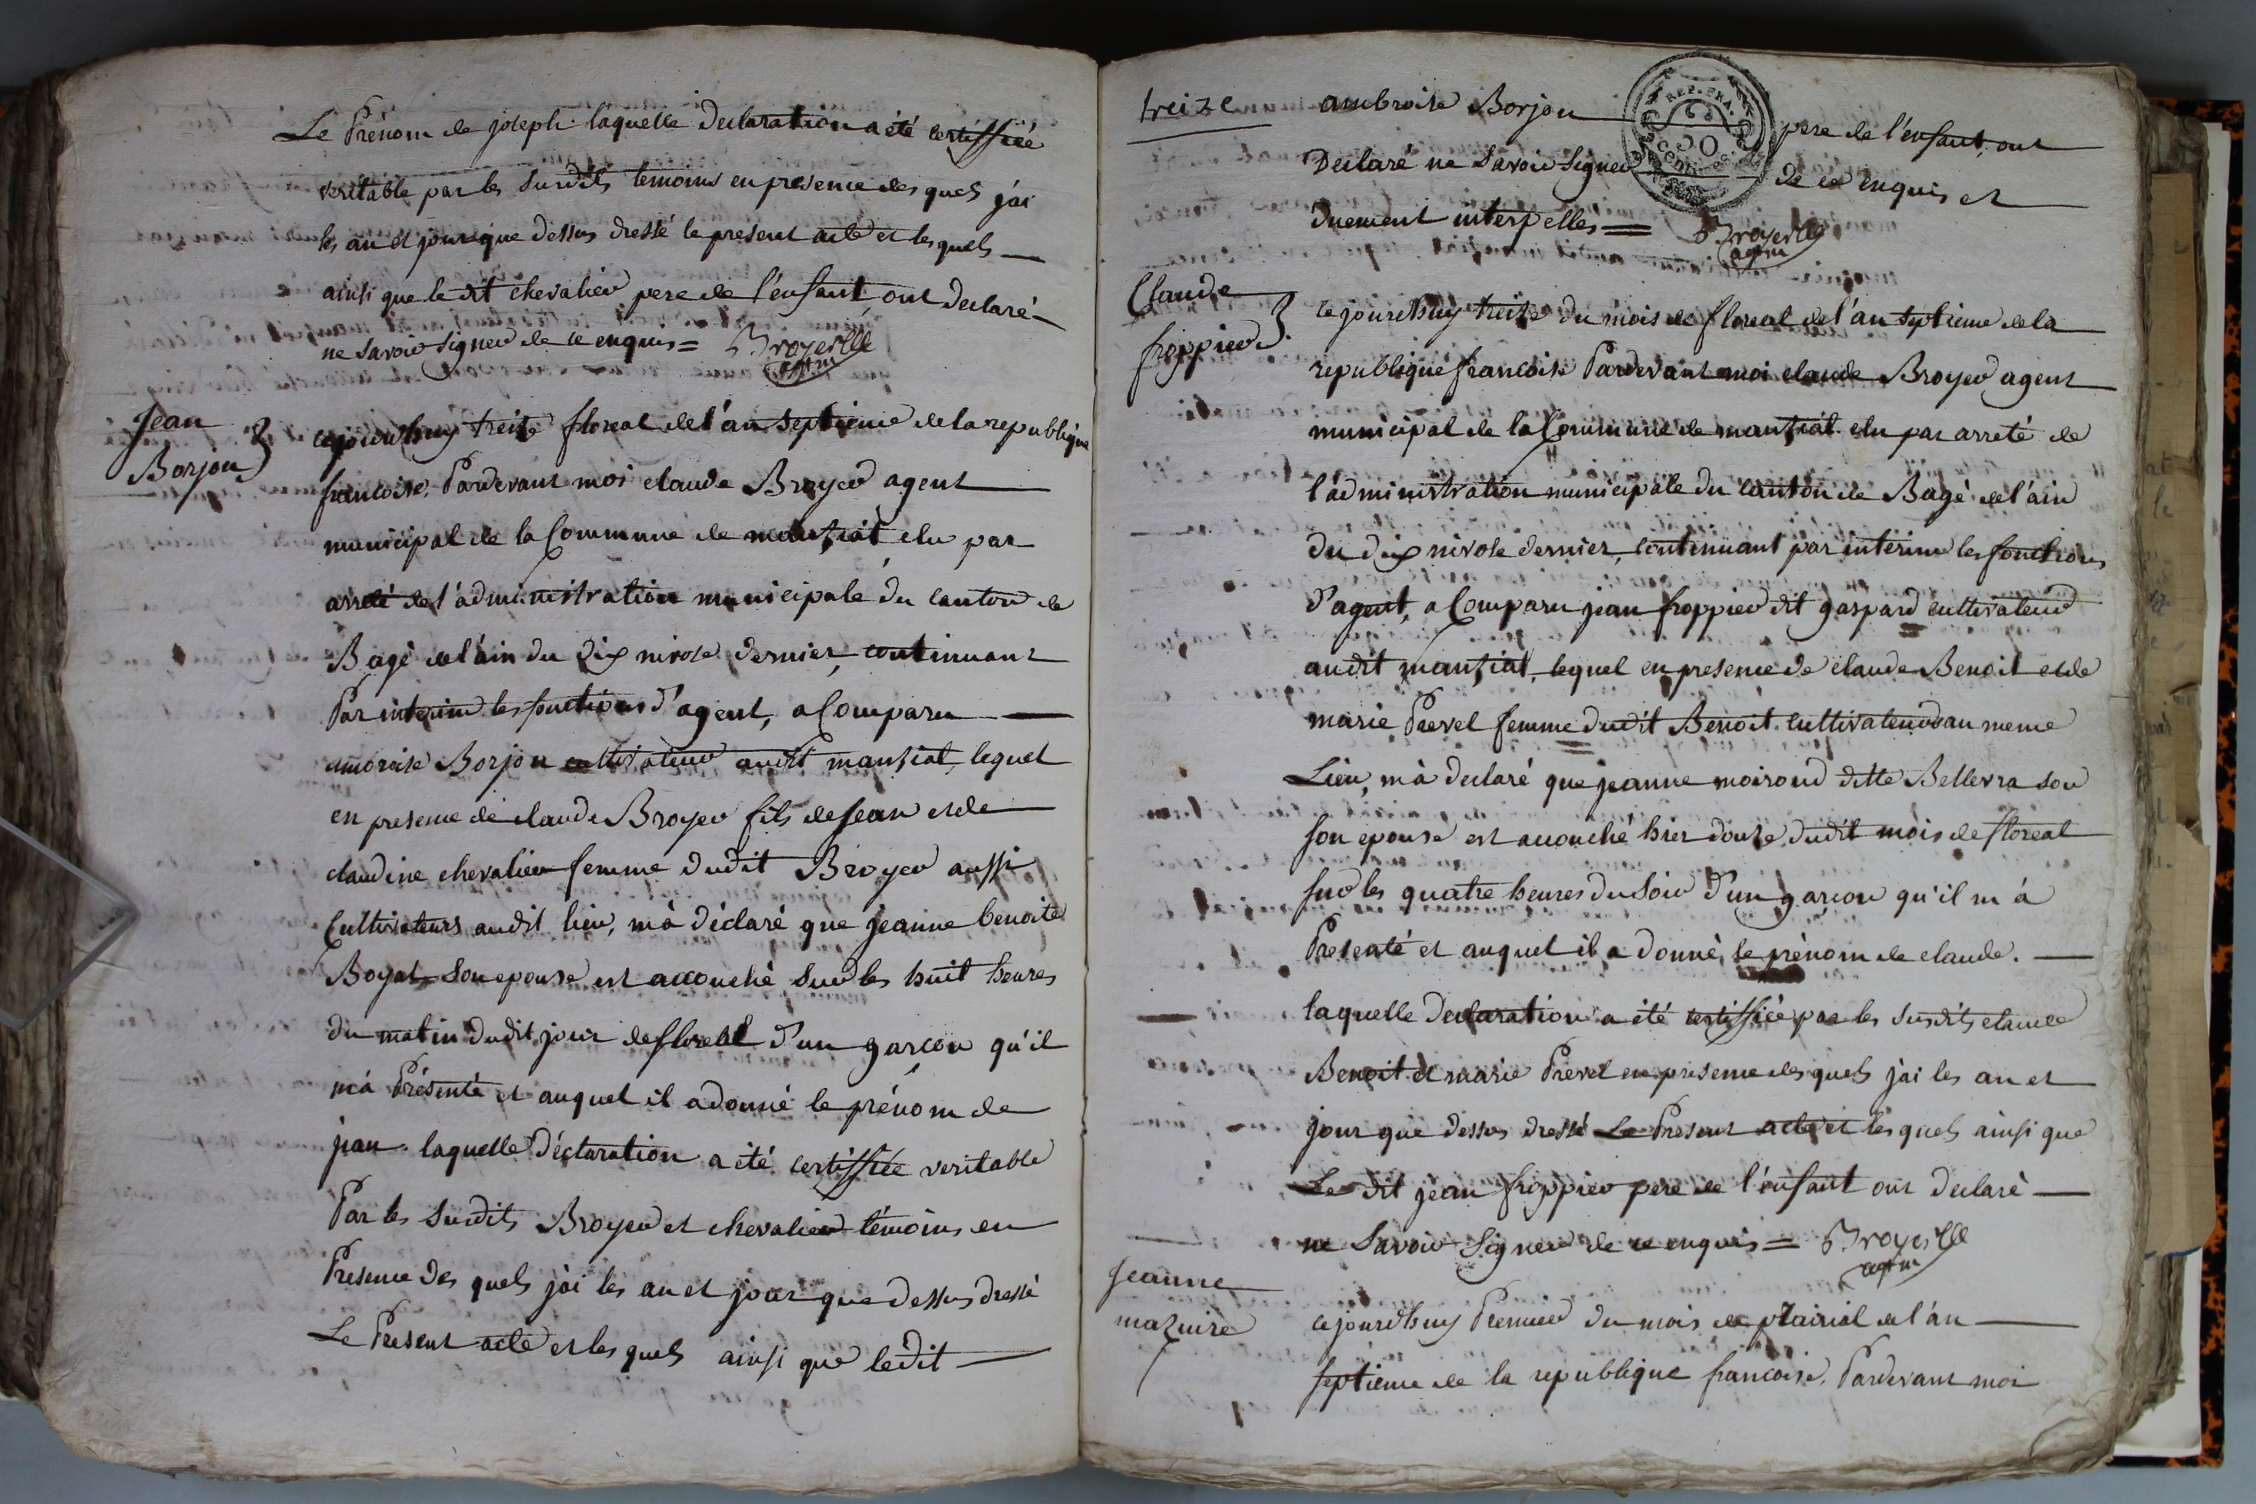 Le Prénom de joseph. laquelle Declaration a été certiffiée
veritable par les susdits temoins en presence des quels j'ai
les an et jour que dessus dressé le present acte et les quels
ainsi que le dit chevalier pere de l'enfant ont declaré
ne savoir signer de ce enquis = Broyer
agm
Jean
Borjon
cejourdhuy treize floreal de l'an septieme de la republique
francoise, Pardevant moi claude Broyer agent
municipal de la Commune de mantziat elu par
arreté de l'administration municipale du canton de
Bagé de l'ain du dix nivose dernier, continuant
Par interim les fonctions d'agent, a Comparu
amoroise Borjon cultivateur audit mantziat, lequel
en presence de claude Broyer fils de jean et de
claudine chevalier femme dudit Broyer aussi
Cultivateurs audit lieu, m'a déclaré que jeanne benoite
Boyat son epouse est accouché sur les huit heures
du matin dudit jour de floreal d'un garcon qu'il
m'a Présenté et auquel il a donné le prénom de
jean. laquelle Déclaration a été certiffiée veritable
Par les susdits Broyer et chevalier témoins en
Presence des quels j'ai les an et jour que dessus dressé
Le Present acte et les quels ainsi que ledit
treize
ambroise Borjon pere de l'enfant, ont
Declaré ne savoir signer de ce enquis et
duement interpellés = Broyer
agm
REP. FRA.
50
cent.
Claude
froppier
cejourdhuy treize du mois de floreal de l'an septieme de la
republique francoise Pardevant moi claude Broyer agent
municipal de la Commune de mantziat elu par arreté de
l'administration municipale du canton de Bagé de l'ain
du dix nivose dernier, continuant par interim les fonctions
d'agent, a Comparu jean froppier dit gaspard cultivateur
audit mantziat, lequel en presence de claude Benoit et de
marie Prevel femme dudit Benoit cultivateurs au meme
Lieu, m'à declaré que jeanne moiroud ditte Bellevra son
son epouse est accouché hier douze dudit mois de floreal
sur les quatre heures du soir d'un garcon qu'il m'à
Presenté et auquel il a donné le prénom de claude.
laquelle Declaration a été certiffiée par les susdits claude
Benoit et marie Prevel en presence des quels j'ai les an et
jour que dessus dressé Le Present acte et les quels ainsi que
Le dit jean froppier pere de l'enfant ont declaré
ne savoir signer de ce enquis = Broyer
agm
Jeanne
mazuire
cejourdhuy Premier du mois de prairial de l'an
septieme de la republique francoise, Pardevant moi